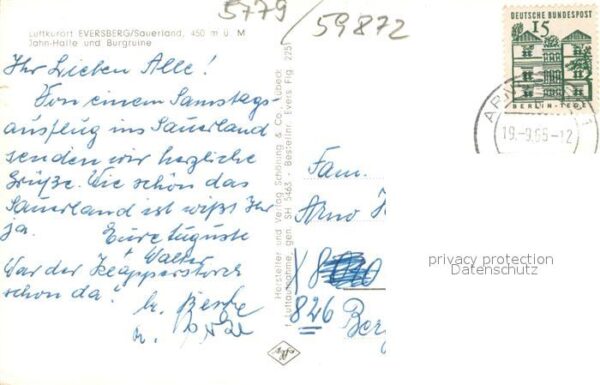 5779 / 59872
Luftkurort EVERSBERG/Sauerland, 450 m ü. M
Jahn-Halle und Burgruine
Ihr Lieben Alle!
Von einem Samstags-
ausflug ins Sauerland
senden wir herzliche
Grüße. Wie schön das
Sauerland ist wißt Ihr
ja. Eure Auguste
+ Walter
War der Klapperstorch
schon da?
Hersteller und Verlag Schöning & Co., Lübeck
Luftaufnahme, gen. SH 5463 - Bestellnr. Evers Fig 2251
Fam.
Arno
826
DEUTSCHE BUNDESPOST
15
BERLIN-TEGEL
19.-9.65-12
privacy protection
Datenschutz